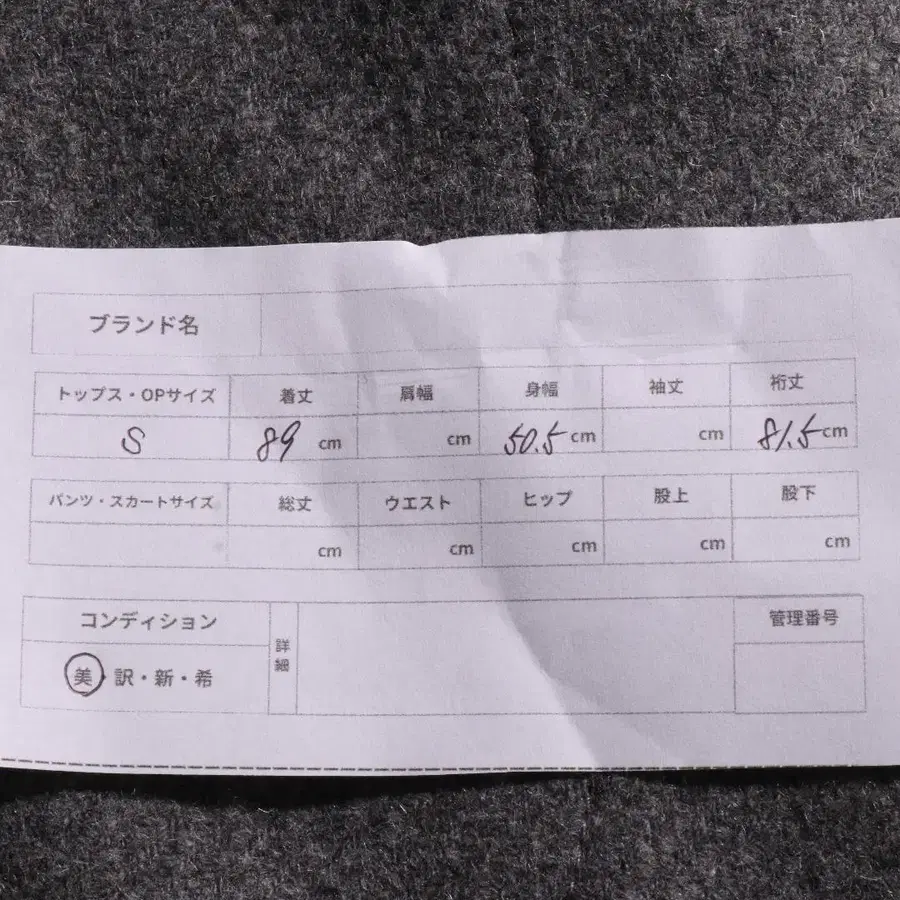 ブランド名
トップス・OPサイズ 着丈 肩幅 身幅 袖丈 裄丈
S 89 cm cm 50.5 cm cm 81.5 cm
パンツ・スカートサイズ 総丈 ウエスト ヒップ 股上 股下
cm cm cm cm cm
コンディション 詳細 管理番号
美・訳・新・希